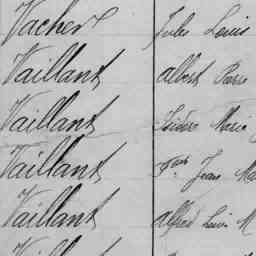 Vacher Jules Louis
Vaillant Albert Pierre
Vaillant Isidore Marie
Vaillant Jean Ma
Vaillant Alfred Louis M